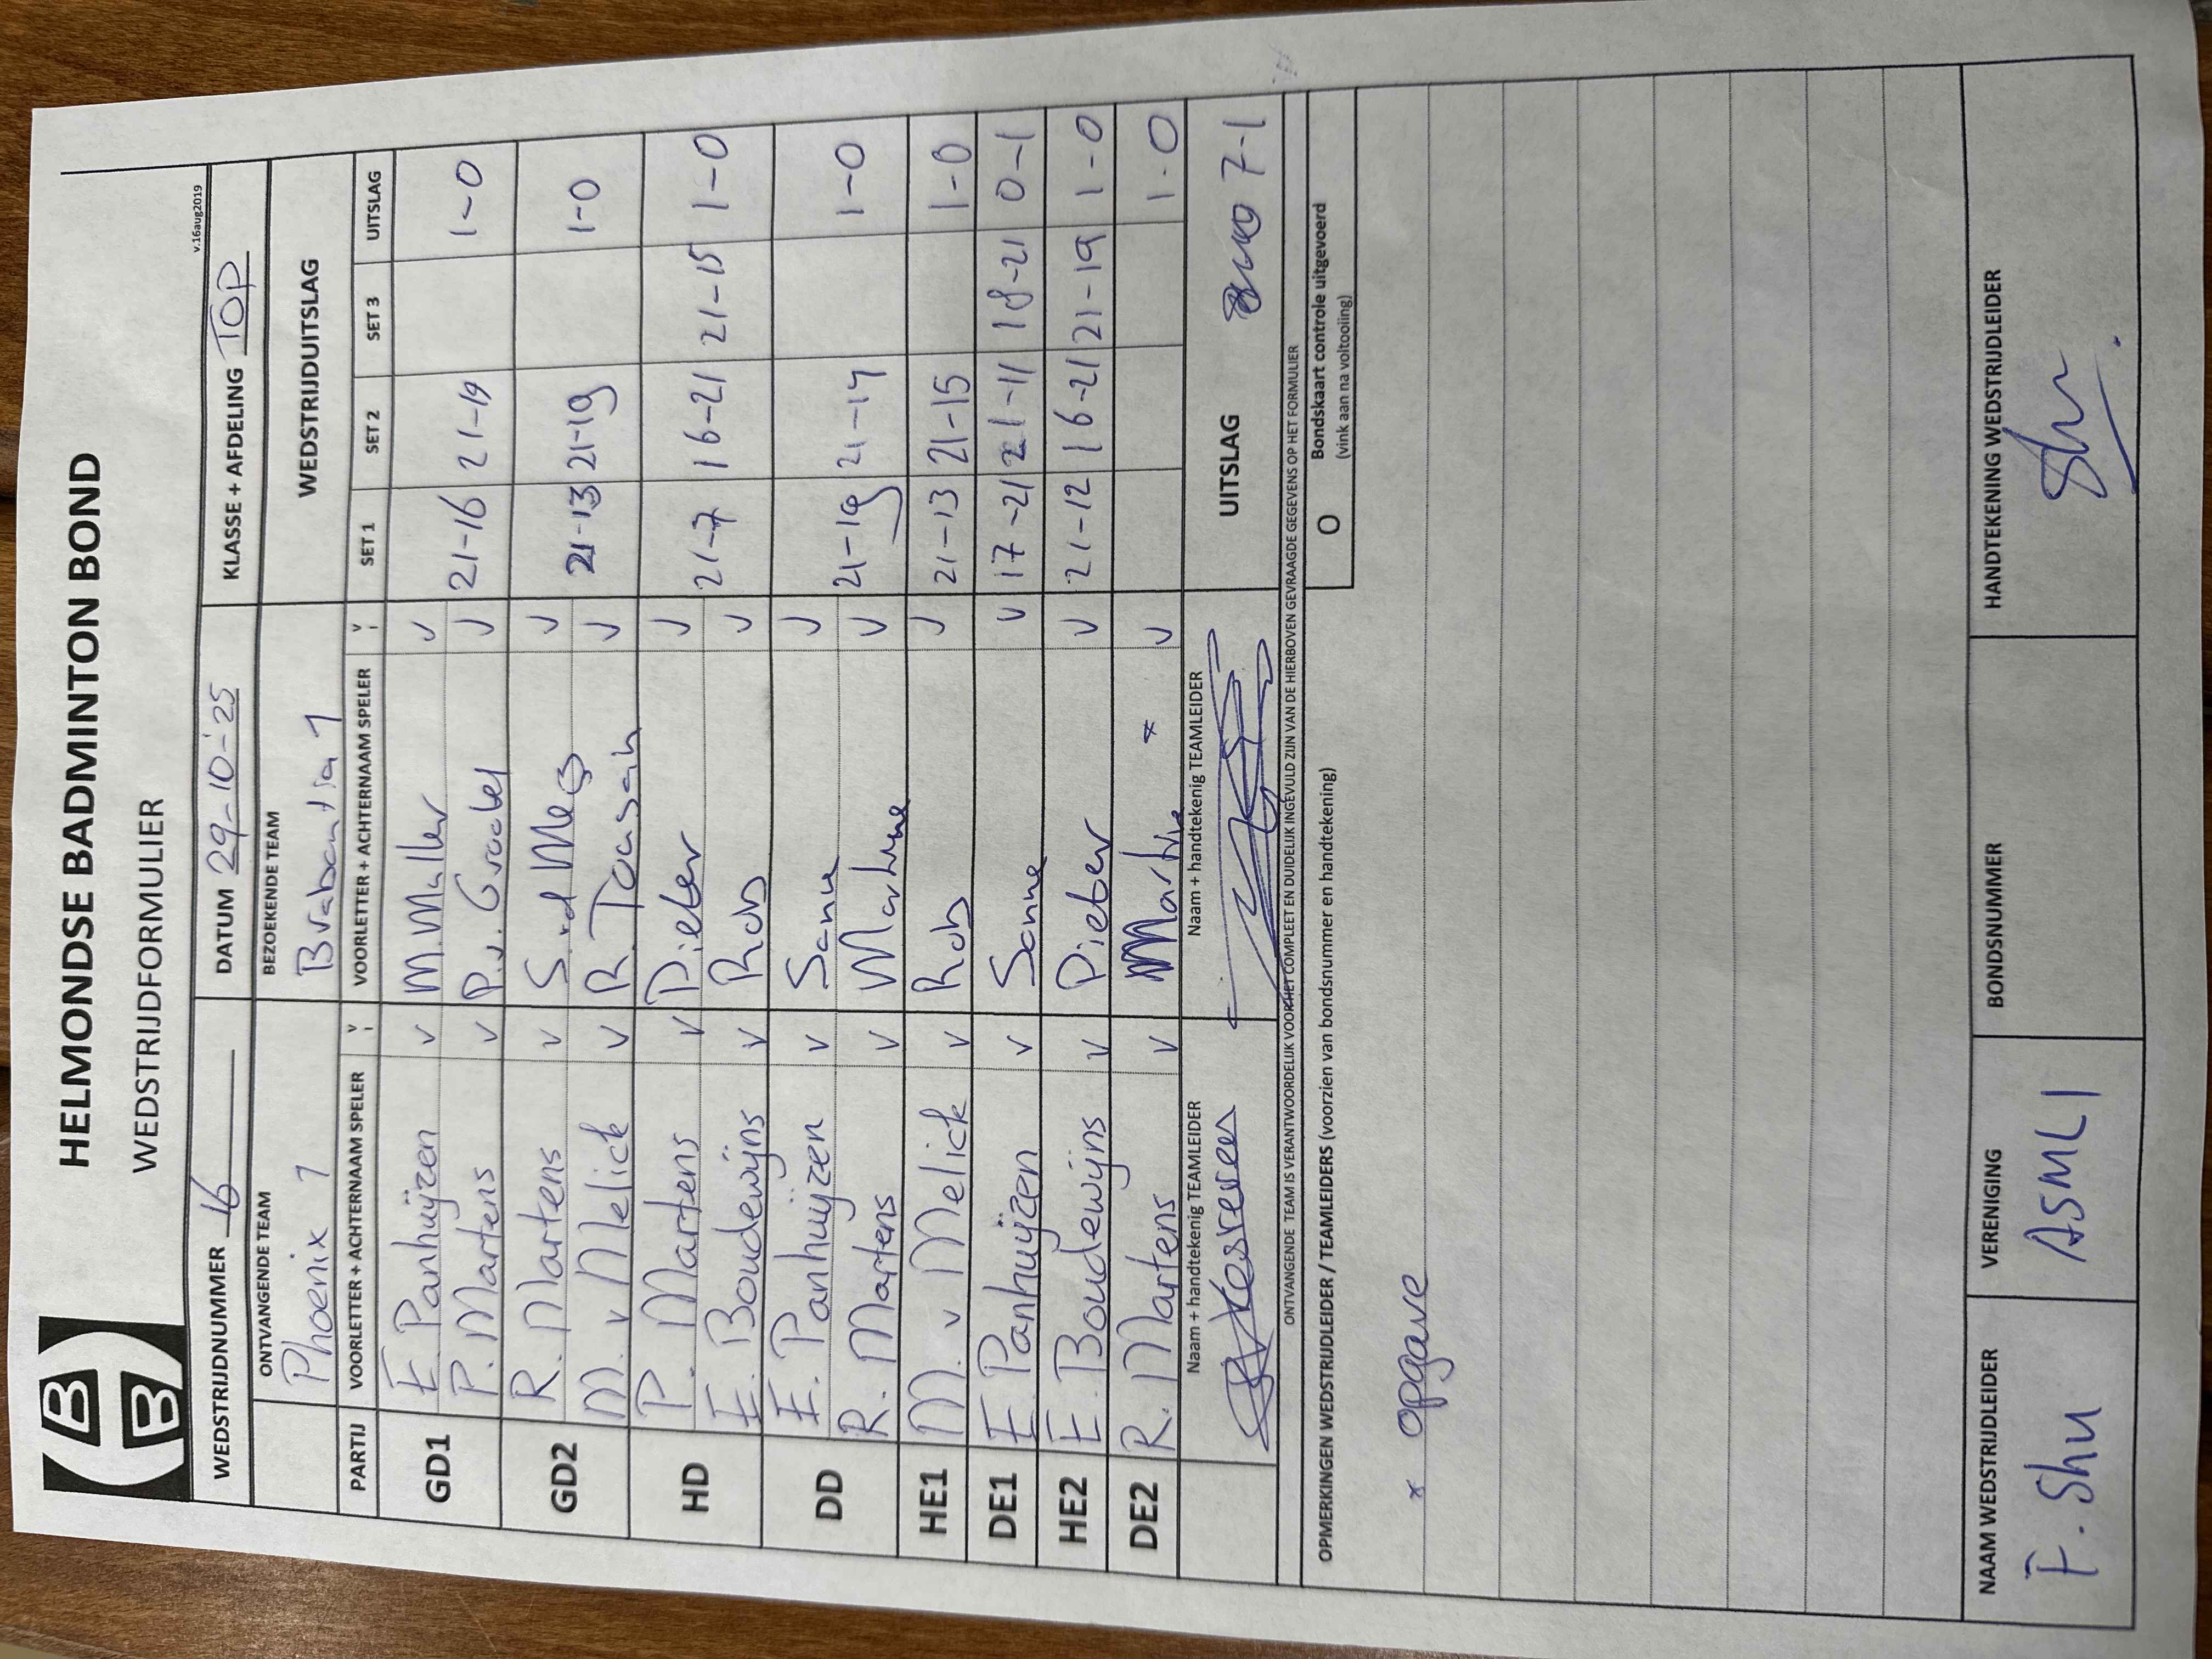 HELMONDSE BADMINTON BOND
WEDSTRIJDFORMULIER
v.16aug2019
WEDSTRIJDNUMMER 16 DATUM 29-10-'25 KLASSE + AFDELING TOP
ONTVANGENDE TEAM BEZOEKENDE TEAM WEDSTRIJDUITSLAG
Phoenix 1 Brabantia 1
PARTIJ VOORLETTER + ACHTERNAAM SPELER V VOORLETTER + ACHTERNAAM SPELER V SET 1 SET 2 SET 3 UITSLAG
GD1 E. Panhuijzen v M. Muller v
P. Martens v P. v. Grootel v 21-16 21-19 1-0
GD2 R. Martens v S. vd v
M. v Melick v R. v 21-13 21-19 1-0
HD P. Martens v Pieter v
E. Boudewijns v Rob v 21-7 16-21 21-15 1-0
DD E. Panhuijzen v Sanne v
R. Martens v Martine v 21-19 21-17 1-0
HE1 M. v Melick v Rob v 21-13 21-15 1-0
DE1 E. Panhuijzen v Sanne v 17-21 21-11 18-21 0-1
HE2 E. Boudewijns v Pieter v 21-12 16-21 21-19 1-0
DE2 R. Martens v Martine * v 1-0
Naam + handtekenig TEAMLEIDER Naam + handtekenig TEAMLEIDER UITSLAG 7-1
ONTVANGENDE TEAM IS VERANTWOORDELIJK VOOR HET COMPLEET EN DUIDELIJK INGEVULD ZIJN VAN DE HIERBOVEN GEVRAAGDE GEGEVENS OP HET FORMULIER
OPMERKINGEN WEDSTRIJDLEIDER / TEAMLEIDERS (voorzien van bondsnummer en handtekening) O Bondskaart controle uitgevoerd
(vink aan na voltooiing)
* opgave
NAAM WEDSTRIJDLEIDER VERENIGING BONDSNUMMER HANDTEKENING WEDSTRIJDLEIDER
F. Shu ASML 1 Shu